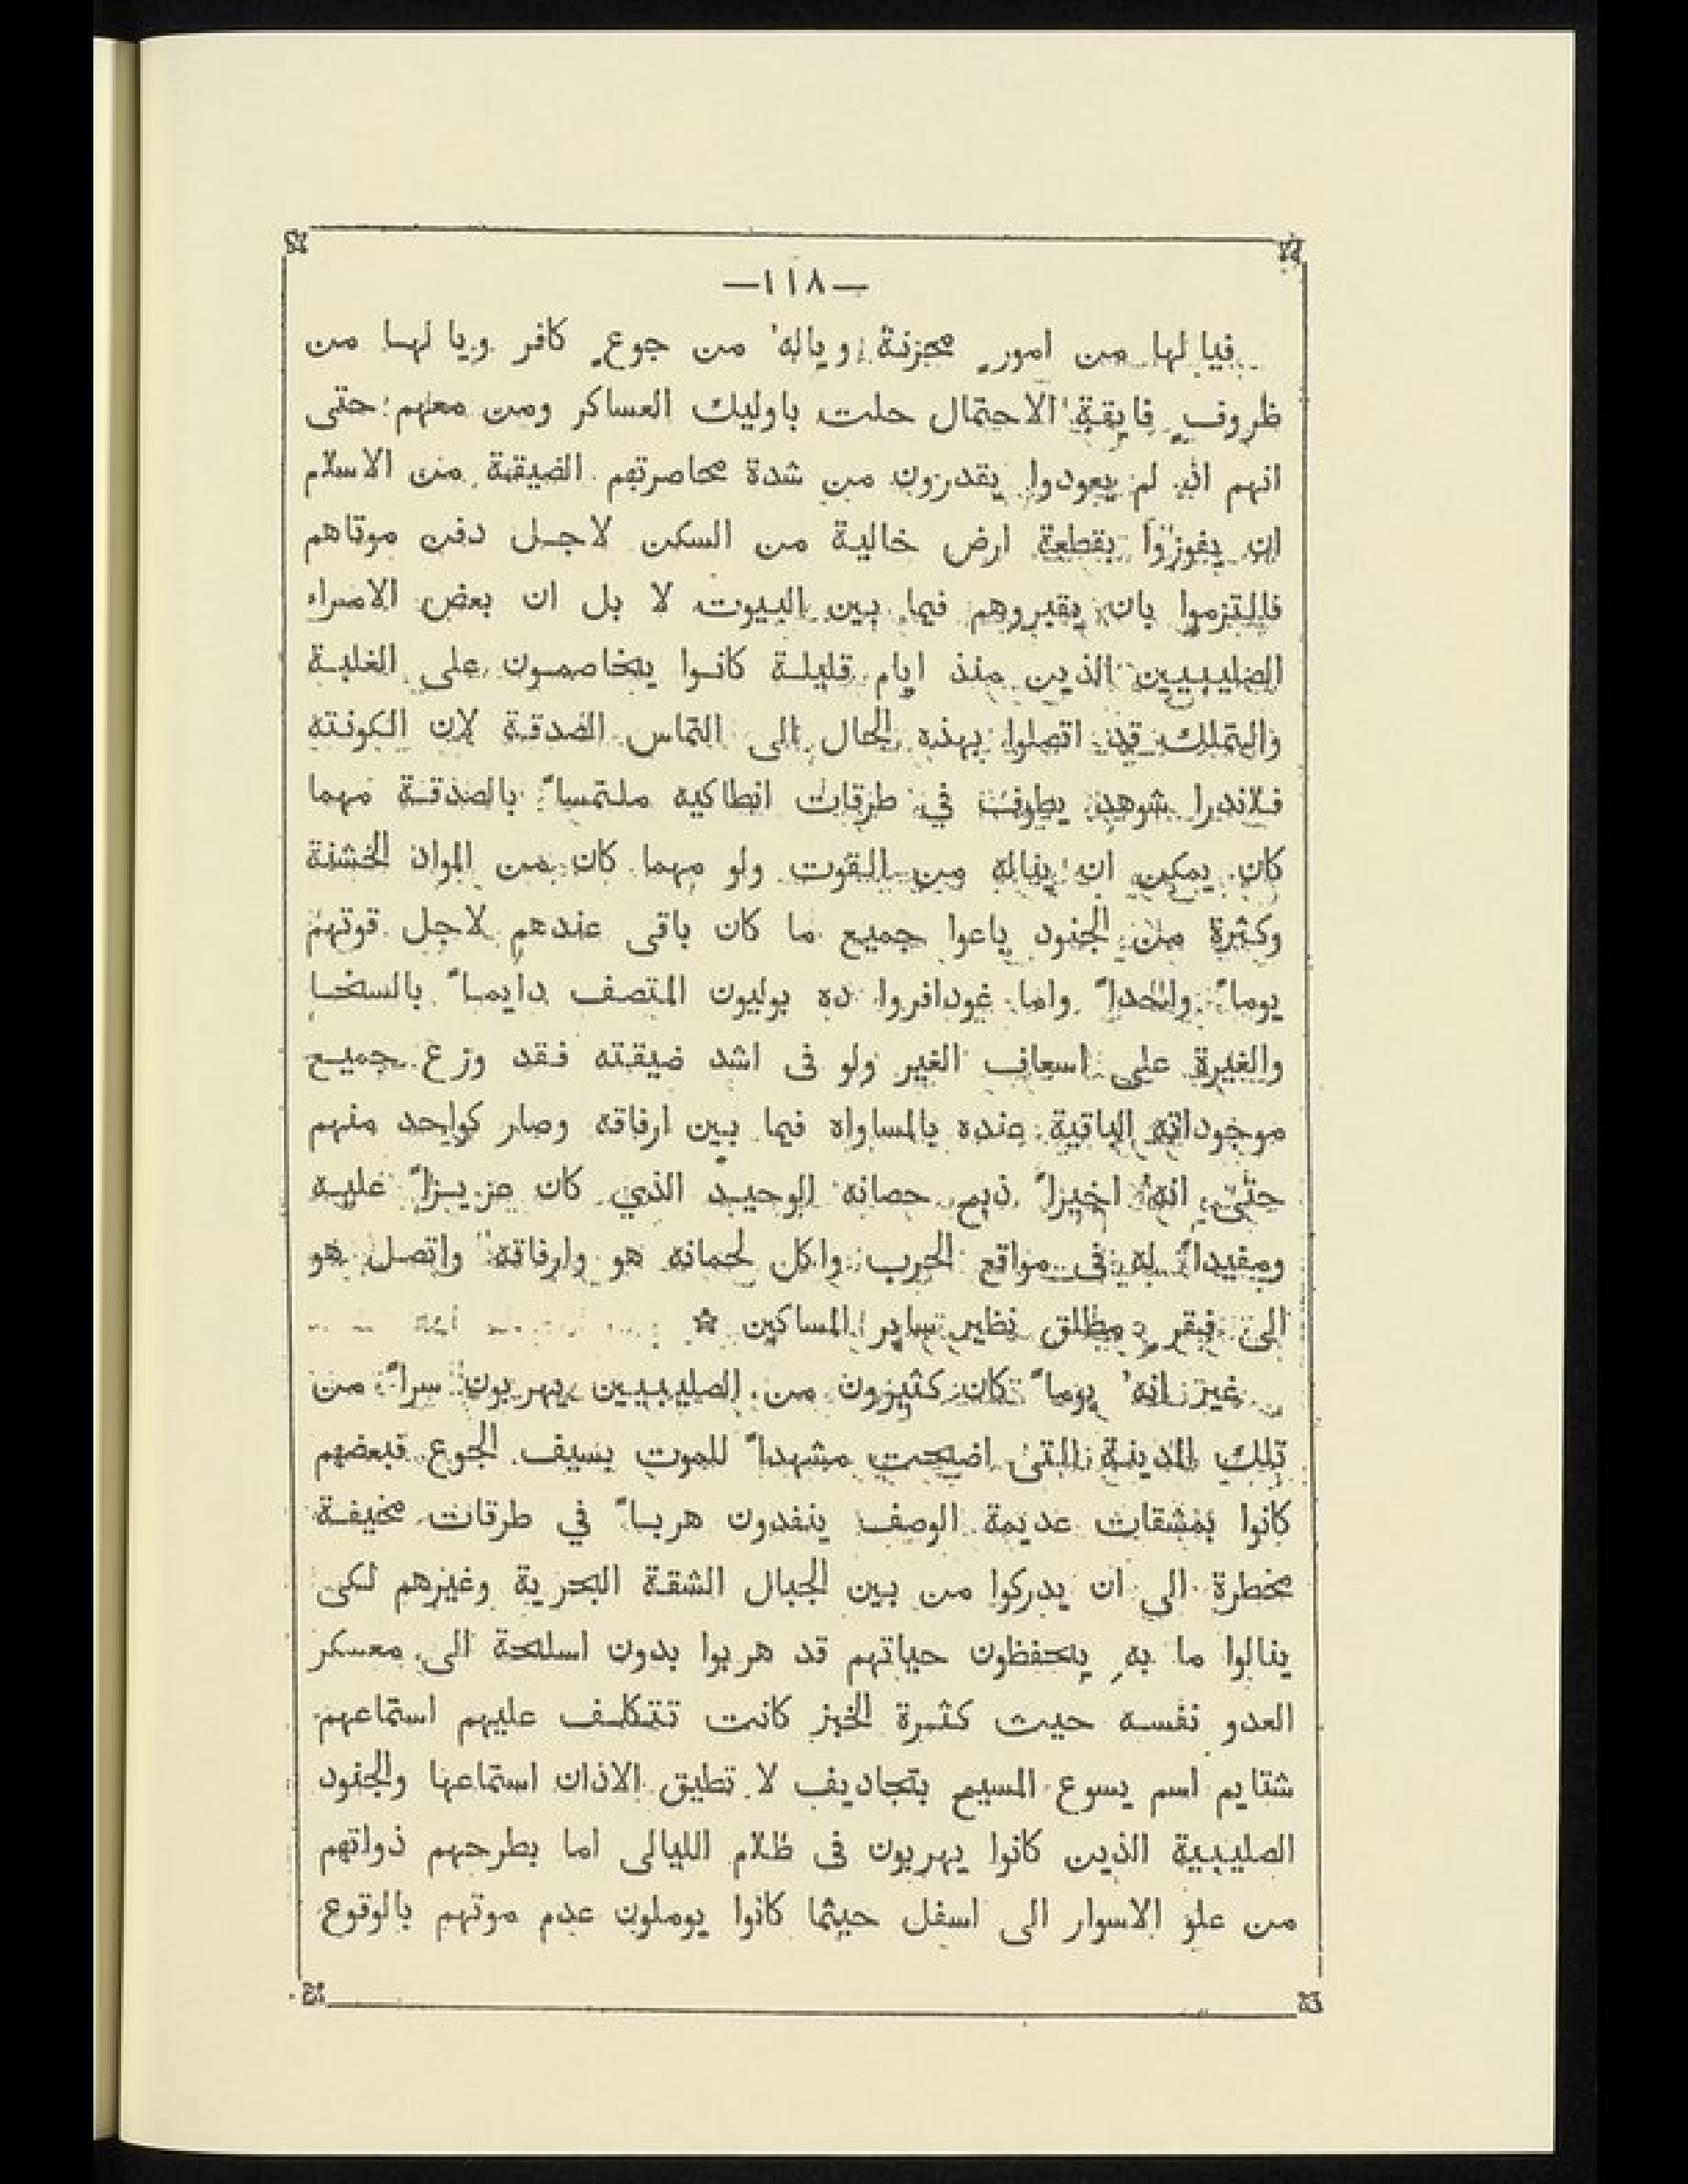 —١١٨—
فيا لها من امورٍ محزنة ويالهُ من جوعٍ كافر ويا لها من
ظروفٍ فايقة الاحتمال حلت باوليك العساكر ومن معهم حتى
انهم اذ لم يعودوا يقدرون من شدة محاصرتهم الضيقة من الاسلام
ان يفوزوا بقطعة ارض خالية من السكن لاجل دفن موتاهم
فالتزموا بان يقبروهم فيما بين البيوت لا بل ان بعض الامراء
الصليبيين الذين منذ ايام قليلة كانوا يتخاصمون على الغلبة
والتملك قد اتصلوا بهذه الحال الى التماس الصدقة لان الكونته
فلاندرا شوهد يطوف في طرقات انطاكيه ملتمساً بالصدقة مهما
كان يمكن ان يناله من القوت ولو مهما كان من المواد الخشنة
وكثرة من الجنود باعوا جميع ما كان باقى عندهم لاجل قوتهم
يوماً واحداً واما غودافروا ده بوليون المتصف دايماً بالسخا
والغيرة على اسعاف الغير ولو فى اشد ضيقته فقد وزع جميع
موجوداته الباقية عنده بالمساواه فيما بين ارفاقه وصار كواحد منهم
حتى انهُ اخيراً ذبح حصانه الوحيد الذي كان عزيزاً عليه
ومفيداً له فى مواقع الحرب واكل لحمانه هو وارفاقه واتصل هو
الى فقرٍ مطلق نظير ساير المساكين ☆
غير انهُ يوماً كان كثيرون من الصليبيين يهربون سراً من
تلك المدينة التى اضحت مشهداً للموت بسيف الجوع فبعضهم
كانوا بمشقات عديمة الوصف ينفدون هرباً في طرقات مخيفة
مخطرة الى ان يدركوا من بين الجبال الشقة البحرية وغيرهم لكى
ينالوا ما بهِ يحفظون حياتهم قد هربوا بدون اسلحة الى معسكر
العدو نفسه حيث كثرة الخبز كانت تتكلف عليهم استماعهم
شتايم اسم يسوع المسيح بتجاديف لا تطيق الاذان استماعها والجنود
الصليبية الذين كانوا يهربون فى ظلام الليالى اما بطرحهم ذواتهم
من علو الاسوار الى اسفل حيثما كانوا يوملون عدم موتهم بالوقوع